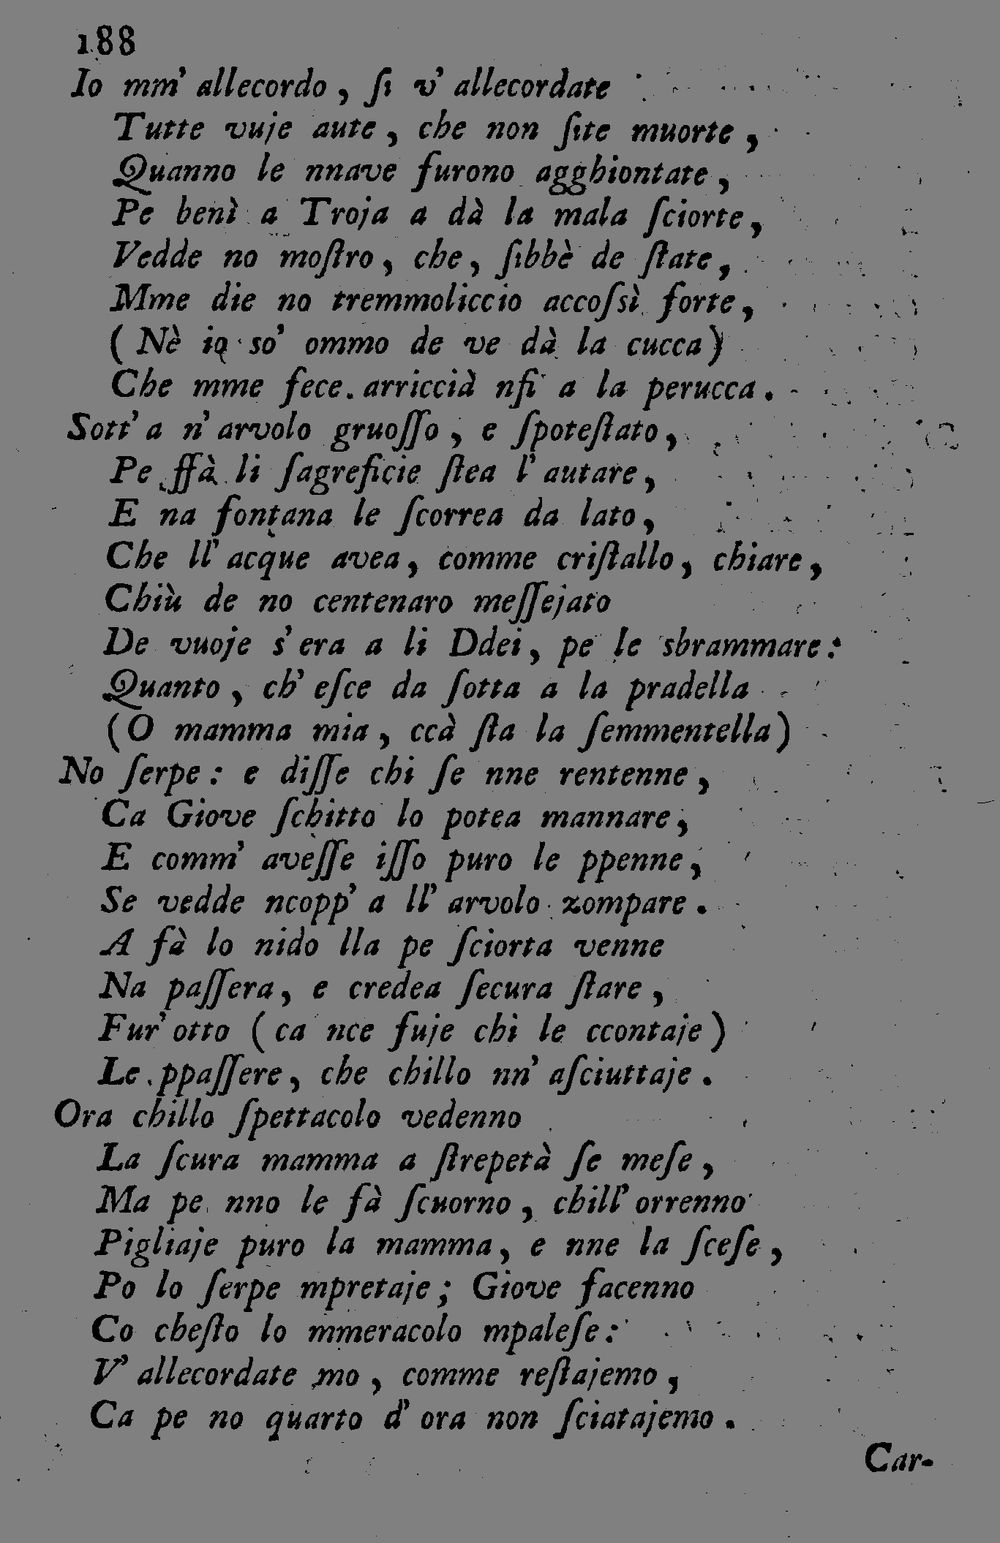 188
Io mm' allecordo, ſi v' allecordate
Tutte vuje aute, che non ſite muorte,
Quanno le nnave furono agghiontate,
Pe benì a Troja a dà la mala ſciorte,
Vedde no moſtro, che, ſibbè de ſtate,
Mme die no tremmoliccio accoſsì forte,
(Nè io so' ommo de ve dà la cucca)
Che mme fece arriccià nfi a la perucca.
Sott' a n' arvolo gruoſſo, e ſpoteſtato,
Pe ffà li ſagreficie ſtea l' autare,
E na fontana le ſcorrea da lato,
Che ll' acque avea, comme criſtallo, chiare,
Chiù de no centenaro meſſejato
De vuoje s' era a li Ddei, pe le sbrammare:
Quanto, ch' eſce da ſotta a la pradella
(O mamma mia, ccà ſta la ſemmentella)
No ſerpe: e diſſe chi ſe nne rentenne,
Ca Giove ſchitto lo potea mannare,
E comm' aveſſe iſſo puro le ppenne,
Se vedde ncopp' a ll' arvolo zompare.
A fà lo nido lla pe ſciorta venne
Na paſſera, e credea ſecura ſtare,
Fur' otto (ca nce fuje chi le ccontaje)
Le ppaſſere, che chillo nn' aſciuttaje.
Ora chillo ſpettacolo vedenno
La ſcura mamma a ſtrepetà ſe meſe,
Ma pe nno le fà ſcuorno, chill' orrenno
Pigliaje puro la mamma, e nne la ſceſe,
Po lo ſerpe mpretaje; Giove facenno
Co cheſto lo mmeracolo mpaleſe:
V' allecordate mo, comme reſtajemo,
Ca pe no quarto d' ora non ſciatajemo.
Car-